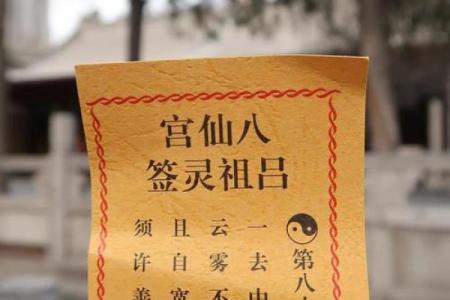 八仙宫
吕祖灵签
第八
一去
云雾不
且自宽
须许善